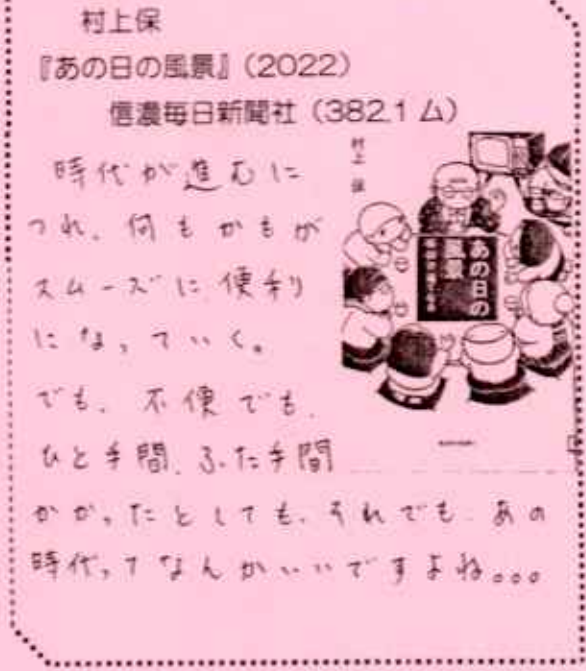 村上保
『あの日の風景』(2022)
信濃毎日新聞社(382.1ム)
時代が進むに
つれ、何もかもが
スムーズに、便利
になっていく。
でも、不便でも、
ひと手間、ふた手間
かかったとしても、それでも、あの
時代ってなんかいいですよね。。。
村上 保
あの日の
風景